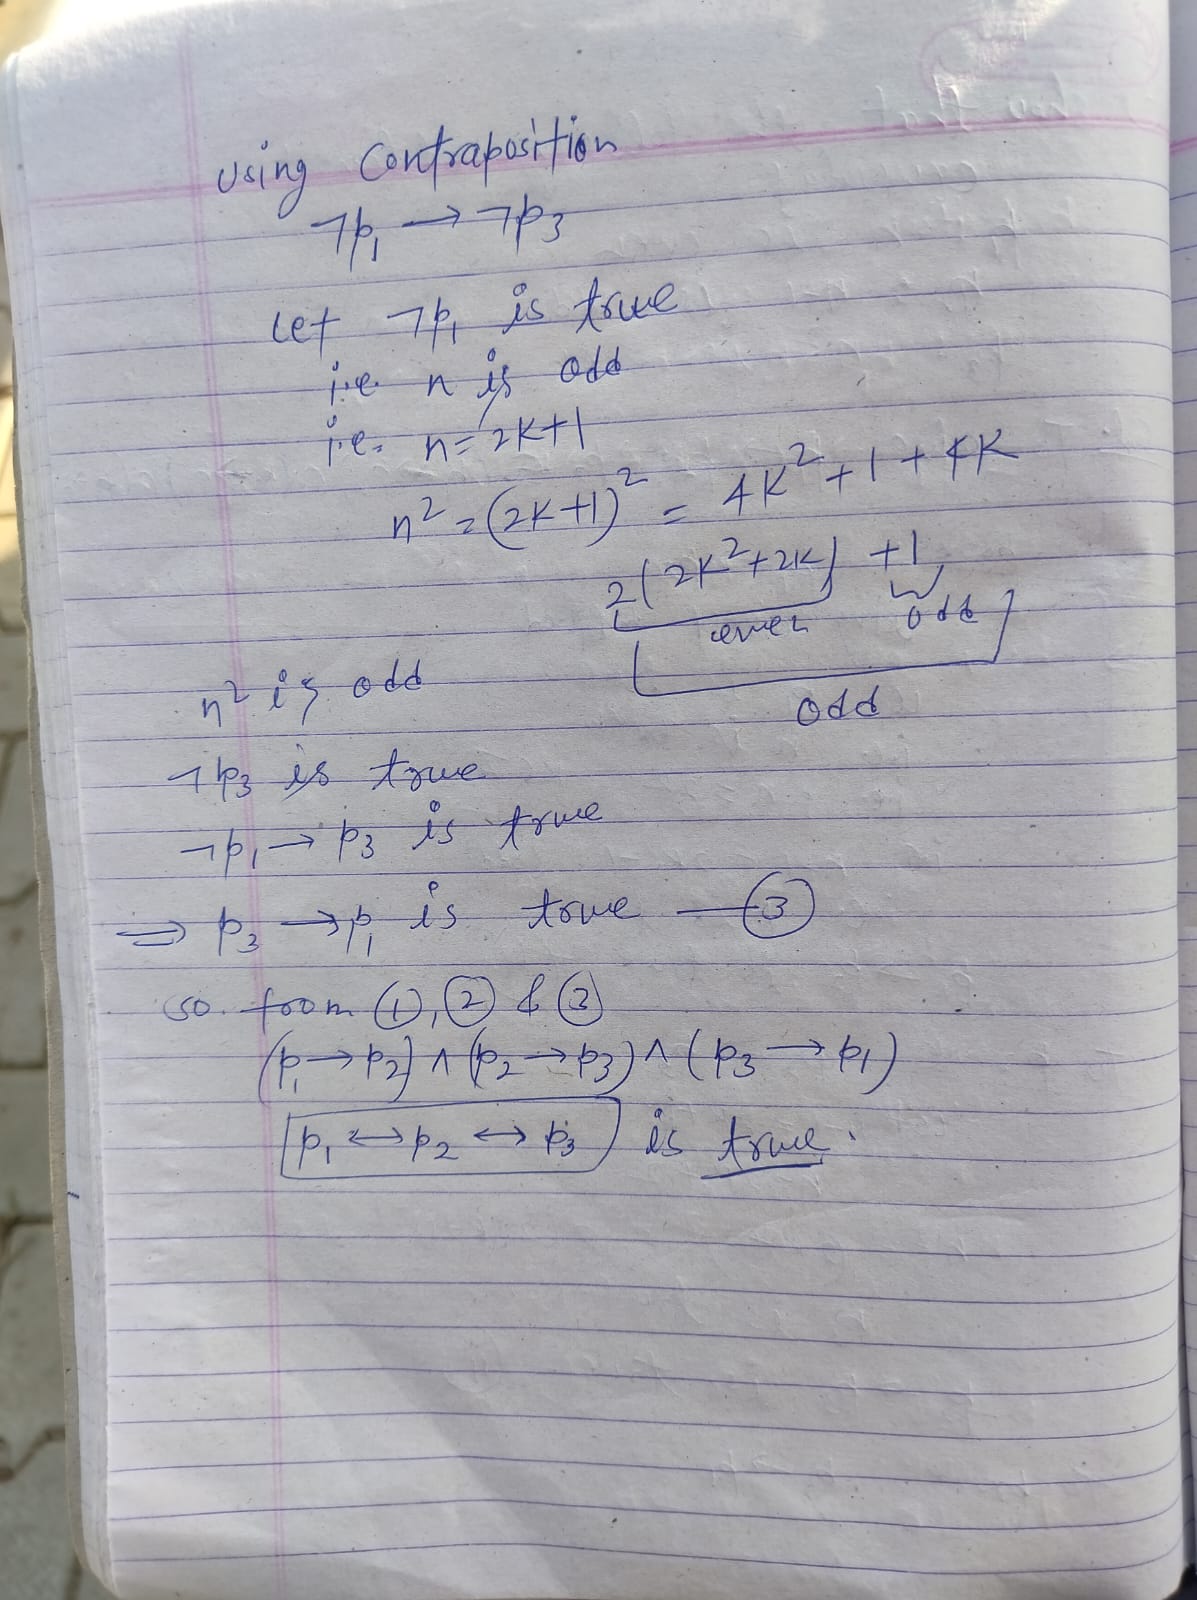 Using Contraposition
¬p₁ → ¬p₃
Let ¬p₁ is true
i.e. n is odd
i.e. n = 2k+1
n² = (2k+1)² = 4k² + 1 + 4k
2(2k²+2k) +1
even odd
odd
n² is odd
¬p₃ is true
¬p₁ → p₃ is true
⇒ p₃ → p₁ is true — ③
so. from ①, ② & ③
(p₁ → p₂) ∧ (p₂ → p₃) ∧ (p₃ → p₁)
p₁ ↔ p₂ ↔ p₃ is true.